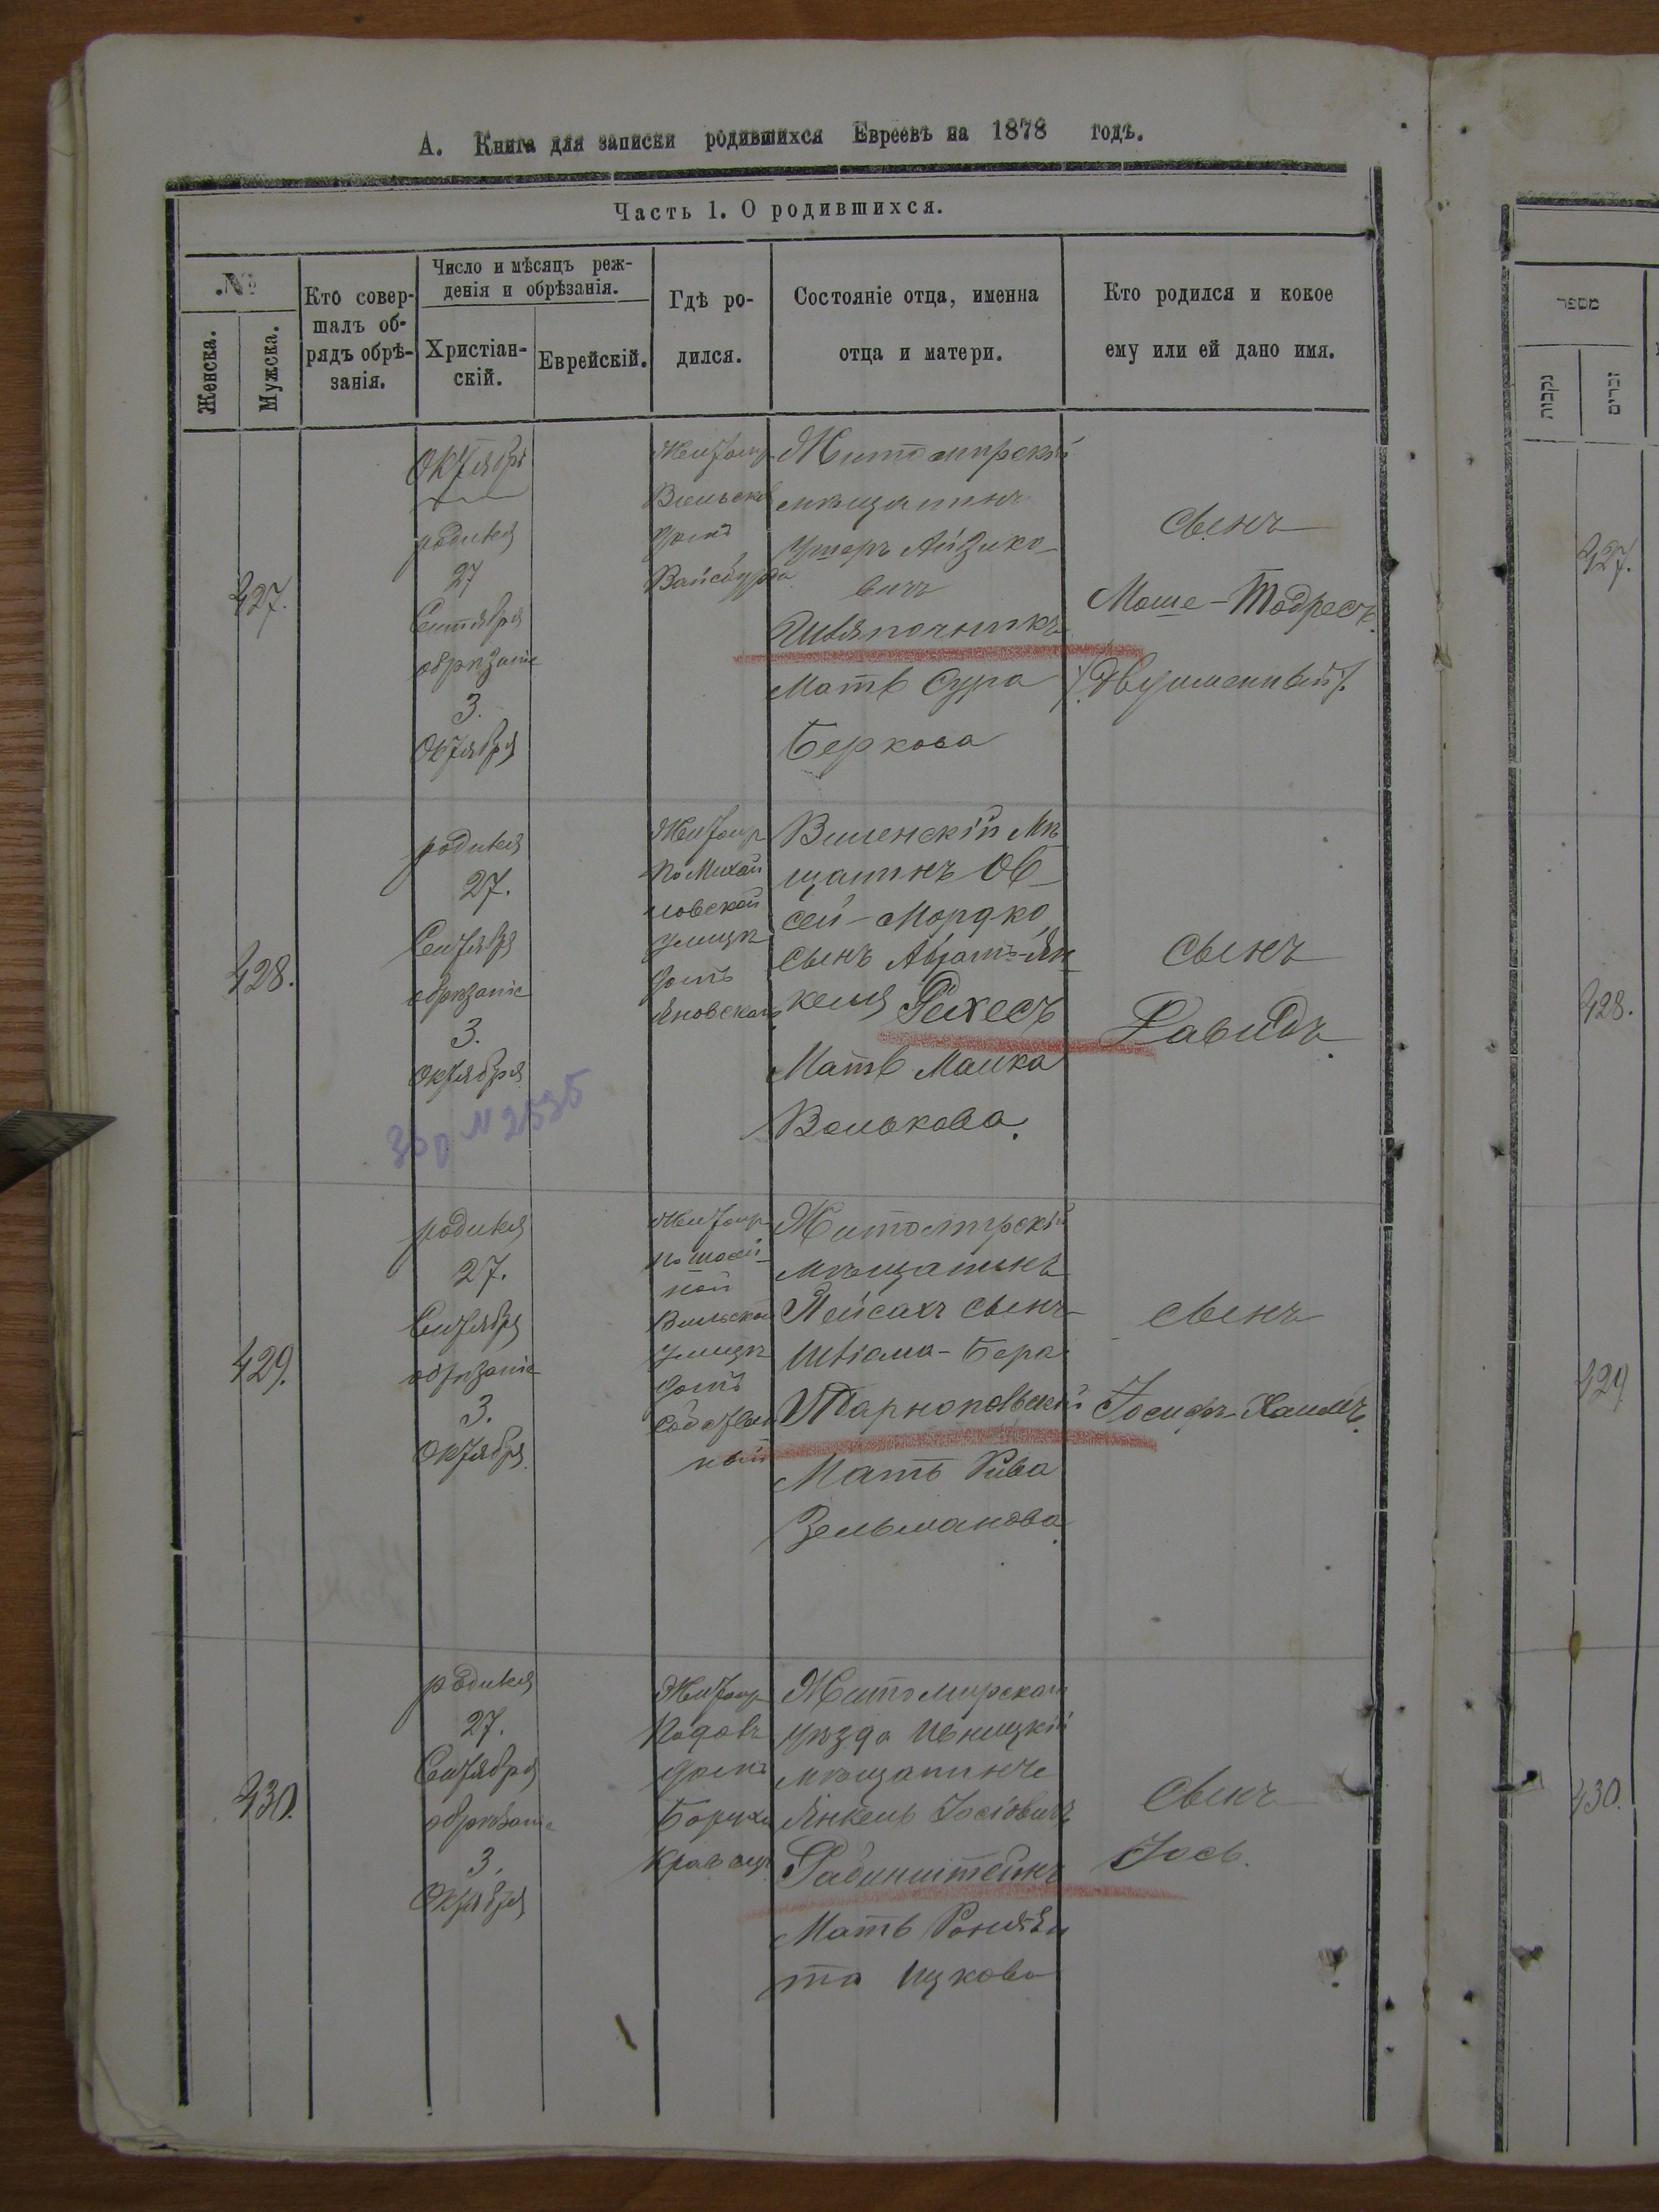 А. Книга для записки родившихся Евреевъ на 1878 годъ.
Часть 1. О родившихся.
№
Женска.
Мужска.
Кто совер-
шалъ об-
рядъ обрѣ-
занія.
Число и мѣсяцъ реж-
денія и обрѣзанія.
Христіан-
скій.
Еврейскій.
Гдѣ ро-
дился.
Состояніе отца, именна
отца и матери.
Кто родился и кокое
ему или ей дано имя.
427.
Октября
родился
27
Сентября
обрѣзаніе
3.
Октября
Житомір
Вильской
домъ
Житомирскій
мѣщанинъ
Ушеръ Айзико-
вичъ
Шляпочникъ
Мать Сура
Беркова
сынъ
Моше-Тодресъ
/Двуименный/.
428.
родился
27.
Сентября
обрѣзаніе
3.
Октября
Житомір
по Михай
ловской
улицѣ
домъ
Яновскаго
Виленскій Мѣ
щанинъ Ов-
сей-Мордко
сынъ Аврамъ-Ян
келя Рихесъ
Мать Малка
Волькова.
сынъ
Давидъ.
№ 2535
429.
родился
27.
Сентября
обрѣзаніе
3.
Октября
Житомір
по шосей-
ной
Вильской
улицѣ
домъ
собствен
ный
Житомирскій
мѣщанинъ
Пейсахъ сынъ
Шлiома-Бера
Тарнопольскій
Мать Рива
Зельманова
сынъ
Іосифъ-Хаимъ.
430.
родился
27.
Сентября
обрѣзаніе
3.
Октября
Житомір
домъ
Боруха
Кравецъ
Житомирскаго
уѣзда Ивницкій
мѣщанинъ
Янкель Іосіовичъ
Рабинштейнъ
Мать
та Ицкова
сынъ
Іось.
מספר
נקבות
זכרים
427.
428.
429
430.